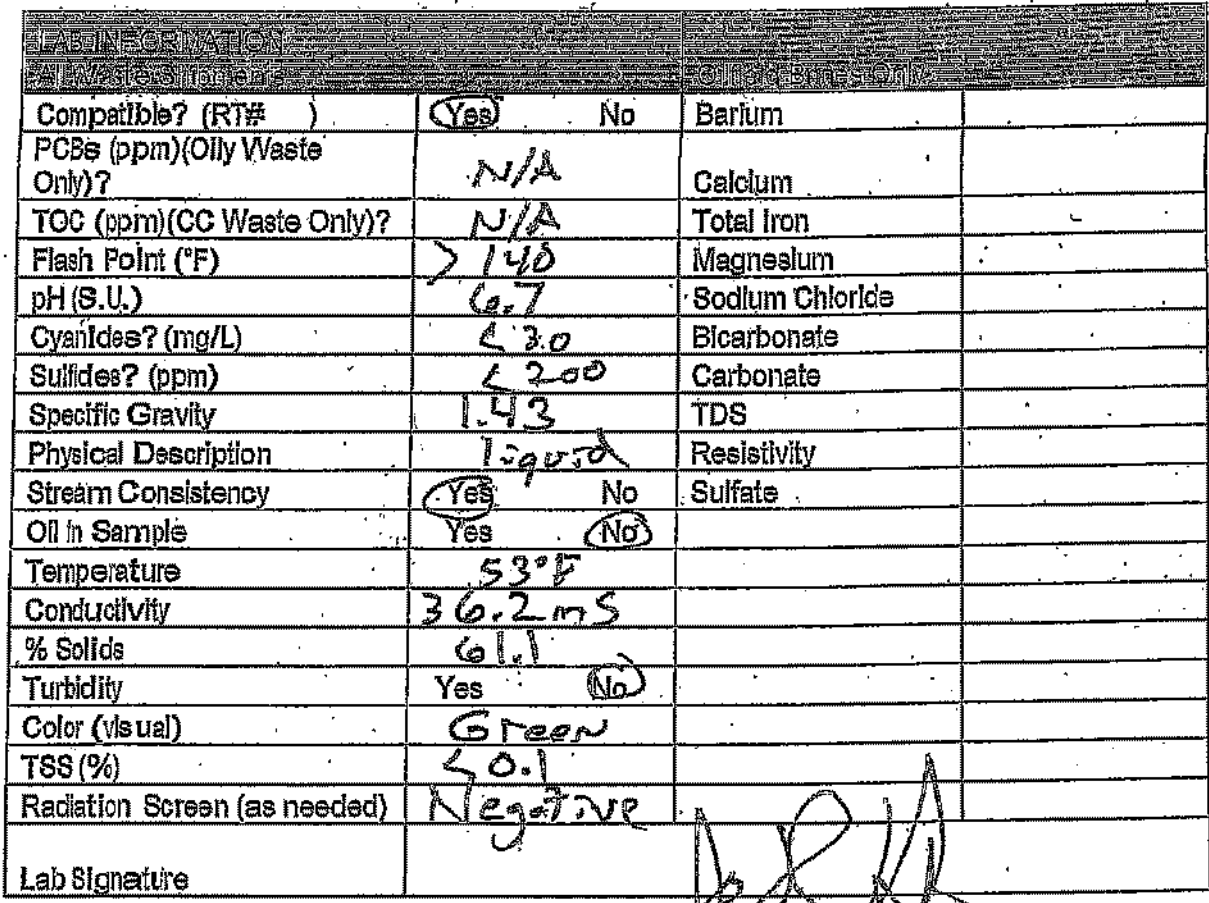 LAB INFORMATION
All Waste Shipments
Compatible? (RT# ) Yes No Barium
PCBs (ppm)(Oily Waste
Only)? N/A Calcium
TOC (ppm)(CC Waste Only)? N/A Total Iron
Flash Point (°F) > 140 Magnesium
pH (S.U.) 6.7 Sodium Chloride
Cyanides? (mg/L) < 30 Bicarbonate
Sulfides? (ppm) < 200 Carbonate
Specific Gravity 1.43 TDS
Physical Description liquid Resistivity
Stream Consistency Yes No Sulfate
Oil in Sample Yes No
Temperature 53°F
Conductivity 36.2 mS
% Solids 61.1
Turbidity Yes No
Color (visual) Green
TSS (%) < 0.1
Radiation Screen (as needed) Negative
Lab Signature